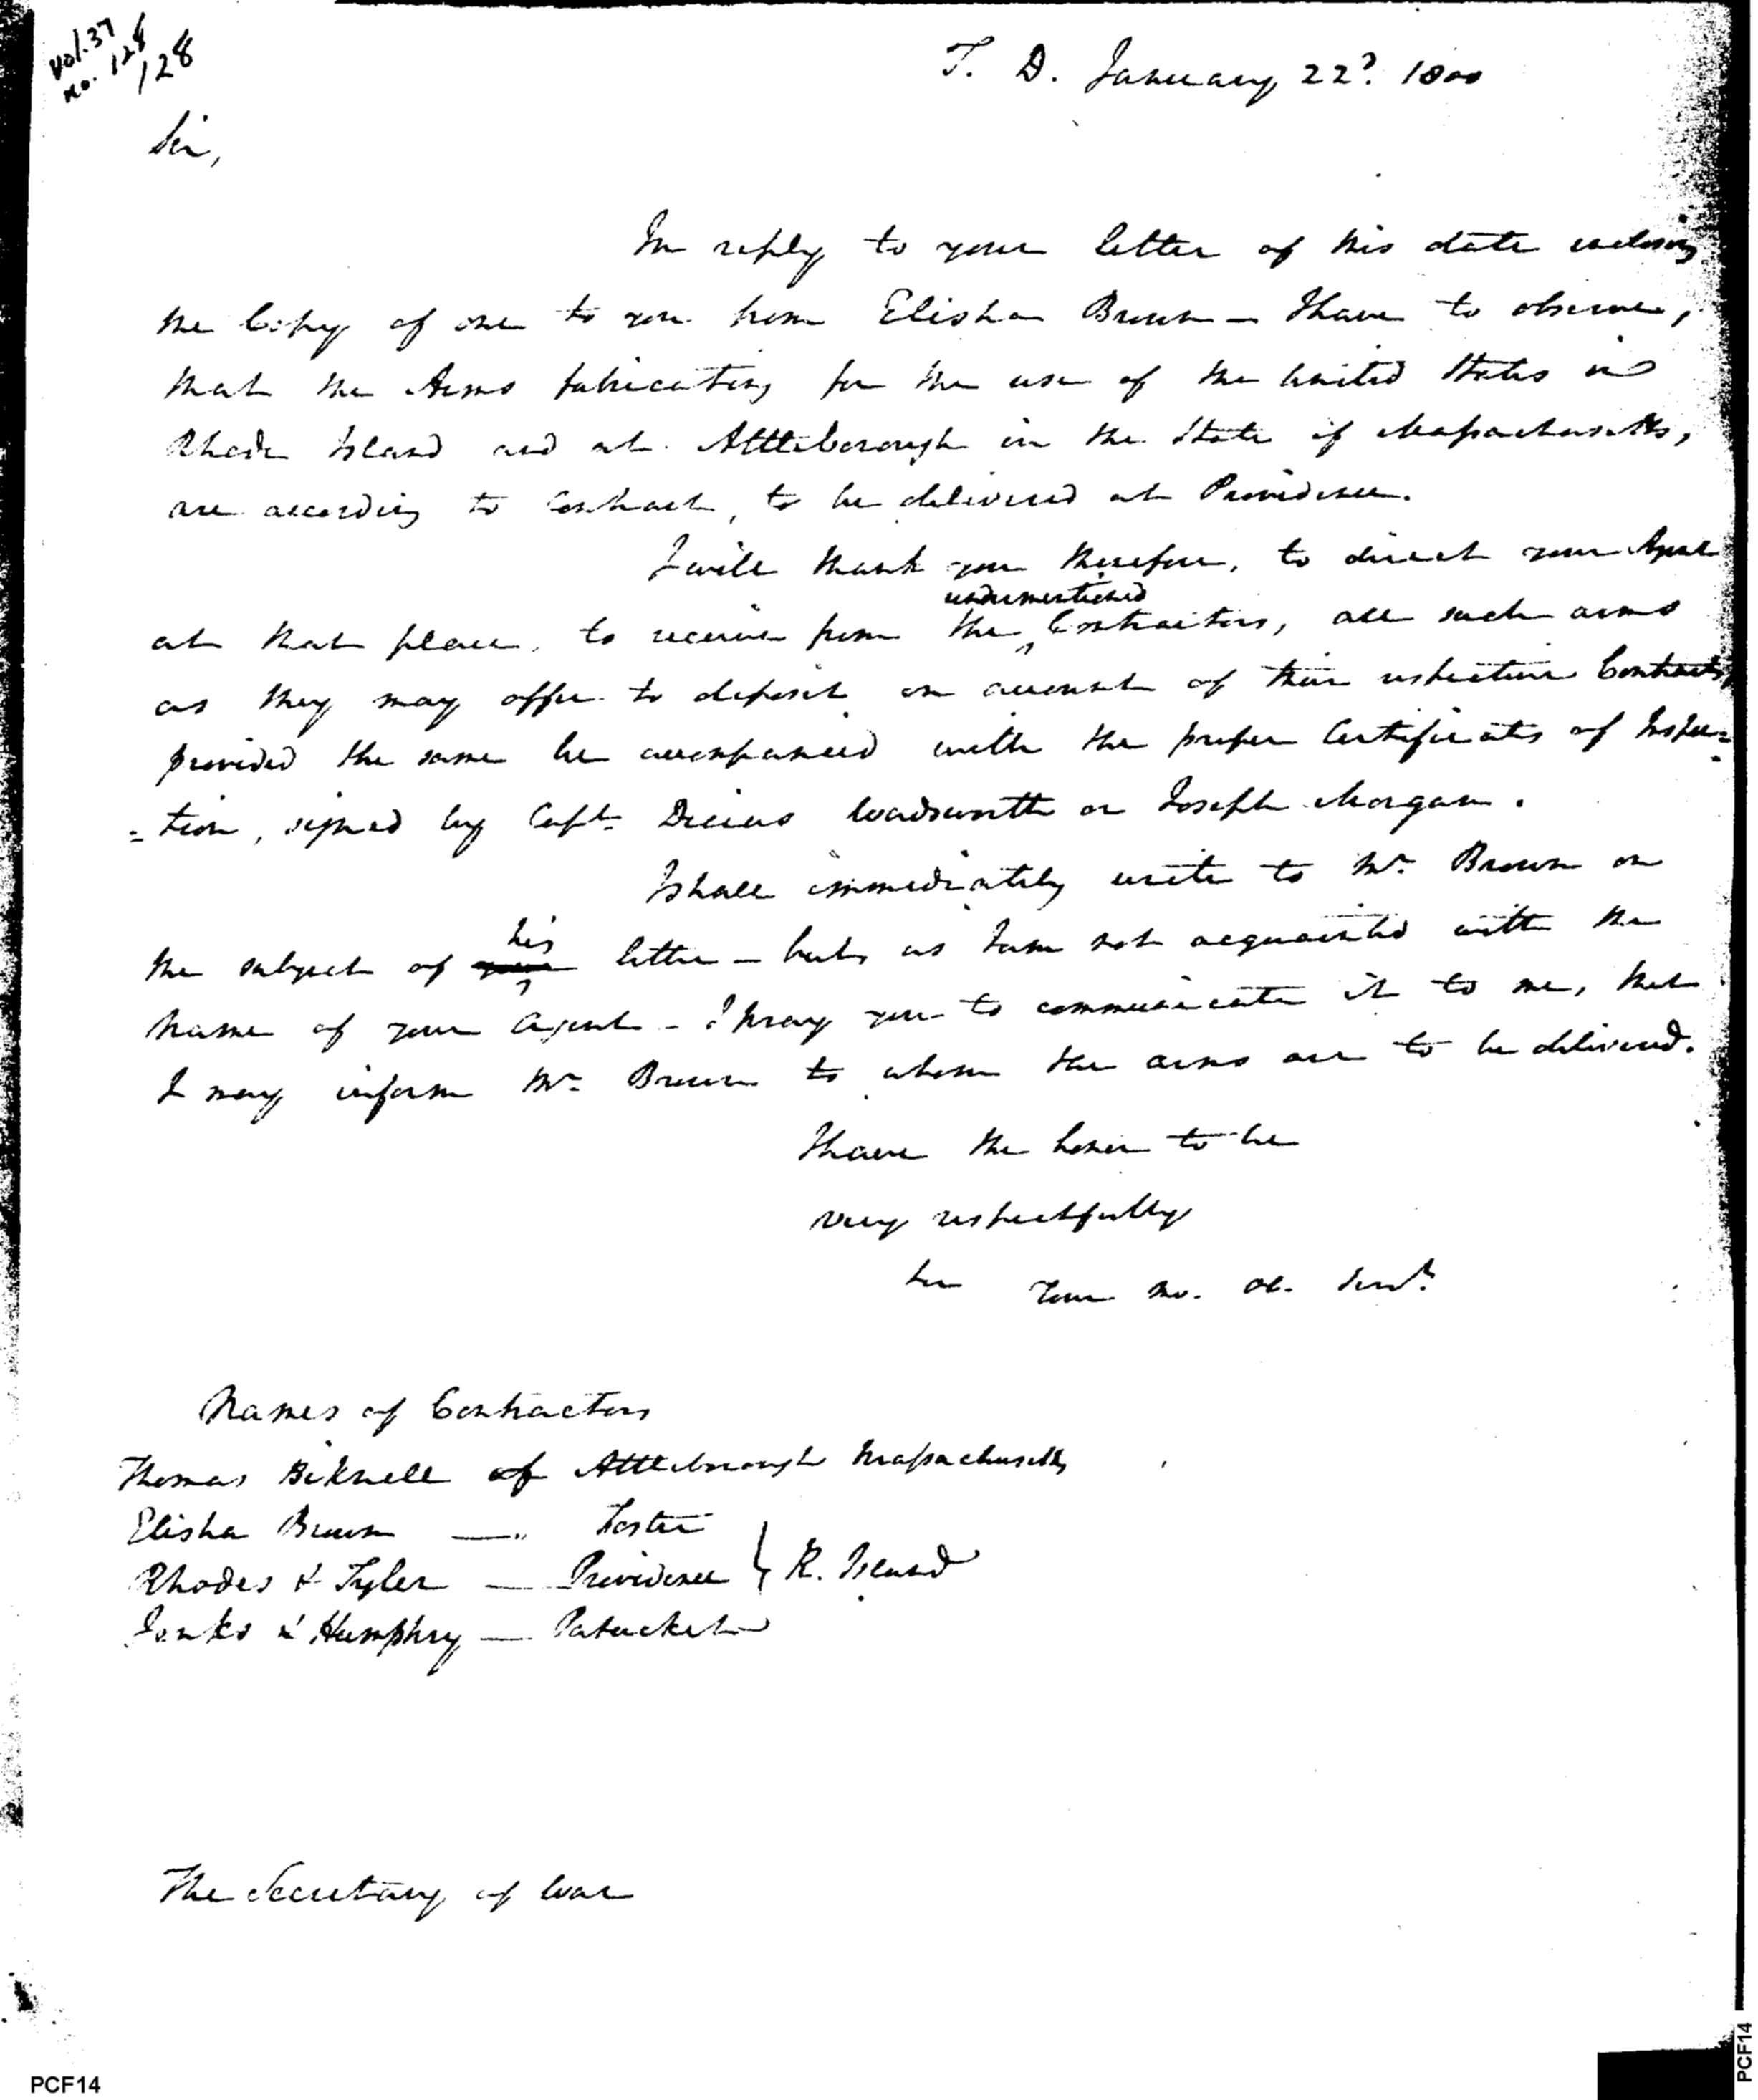 vol. 37
no. 128
128
T. D. January 22d. 1800
Sir,
In reply to your letter of this date inclosing
the Copy of one to you from Elisha Brown — I have to observe,
that the Arms fabricating for the use of the United States in
Rhode Island and at Attleborough in the State of Massachusetts,
are according to Contract, to be delivered at Providence.
I will thank you therefore, to direct your Agent
undermentioned
at that place, to receive from the ^ Contractors, all such arms
as they may offer to deposit on account of their respective Contracts,
provided the same be accompanied with the proper Certificates of Inspec=
=tion, signed by Capt. Decius Wadsworth or Joseph Morgan.
I shall immediately write to Mr. Brown on
his
the subject of your letter — but as I am not acquainted with the
name of your Agent — I pray you to communicate it to me, that
I may inform Mr. Brown to whom the arms are to be delivered.
I have the honor to be
very respectfully
Sir Your mo. ob. Servt.
Names of Contractors
Thomas Bicknell of Attleborough Massachusetts
Elisha Brown — " Foster
Rhodes & Tyler — Providence } R. Island
Jenks & Humphry — Patucket
The Secretary of War
PCF14
PCF14